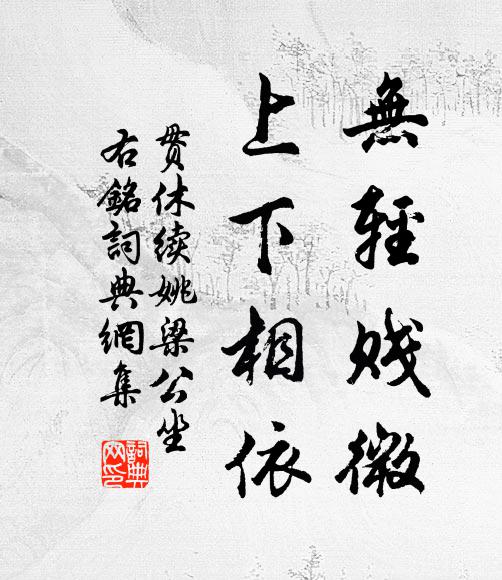 無輕賤微
上下相依
貫休续姚梁公坐
右銘詞典網集
詞典网印